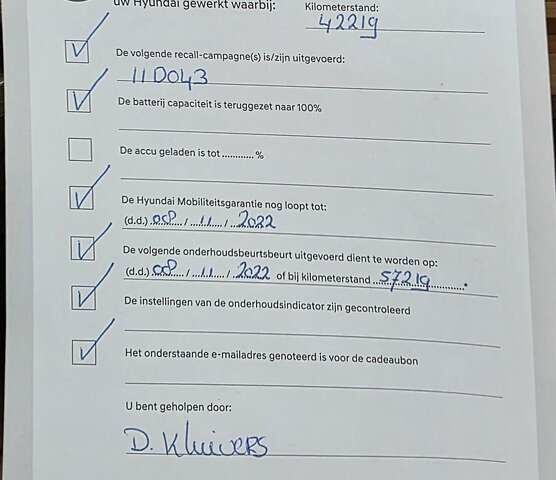 uw Hyundai gewerkt waarbij:
Kilometerstand:
42219
De volgende recall-campagne(s) is/zijn uitgevoerd:
11D043
De batterij capaciteit is teruggezet naar 100%
De accu geladen is tot ............ %
De Hyundai Mobiliteitsgarantie nog loopt tot:
(d.d.) 08 / 11 / 2022
De volgende onderhoudsbeurtsbeurt uitgevoerd dient te worden op:
(d.d.) 08 / 11 / 2022 of bij kilometerstand 57219
De instellingen van de onderhoudsindicator zijn gecontroleerd
Het onderstaande e-mailadres genoteerd is voor de cadeaubon
U bent geholpen door:
D. Kluivers